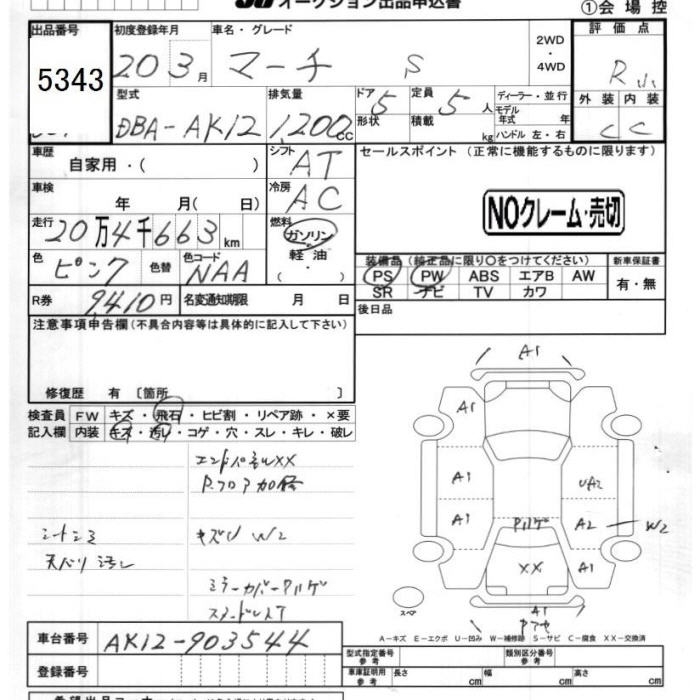 オークション出品申込書
①会場控
出品番号
5343
初度登録年月
20 3月
車名・グレード
マーチ S
2WD・4WD
評価点
R
外装 内装
C C
型式
DBA-AK12
排気量
1,200cc
ドア 5
形状
定員 5人
積載 kg
ディーラー・並行
モデル年式 年
ハンドル 左・右
車歴
自家用・( )
シフト AT
セールスポイント (正常に機能するものに限ります)
車検
年 月( 日)
冷房 AC
NOクレーム・売切
走行
20万4千663km
燃料
ガソリン
軽油
・( )
色 ピンク
色替
色コード NAA
装備品(純正品に限り○をつけてください)
PS PW ABS エアB AW
SR ナビ TV カワ
新車保証書
有・無
R券 9,410円
名変通知期限 月 日
後日品
注意事項申告欄(不具合内容等は具体的に記入して下さい)
修復歴 有 〔箇所 〕
検査員記入欄
FW キズ・飛石・ヒビ割・リペア跡・×要
内装 キズ・汚れ・コゲ・穴・スレ・キレ・破レ
エンドパネルXX
P.フロア加修
シートシミ
キズU W2
天バリ汚レ
ミラーカバーハゲ
A1
A1
A1
UA2
A1
Pハゲ
A2
W2
XX
A1
A1
スペア
A-キズ E-エクボ U-凹み W-補修跡 S-サビ C-腐食 XX-交換済
車台番号
AK12-903544
登録番号
型式指定番号 参考
類別区分番号 参考
車庫証明用 参考
長さ cm
幅 cm
高さ cm